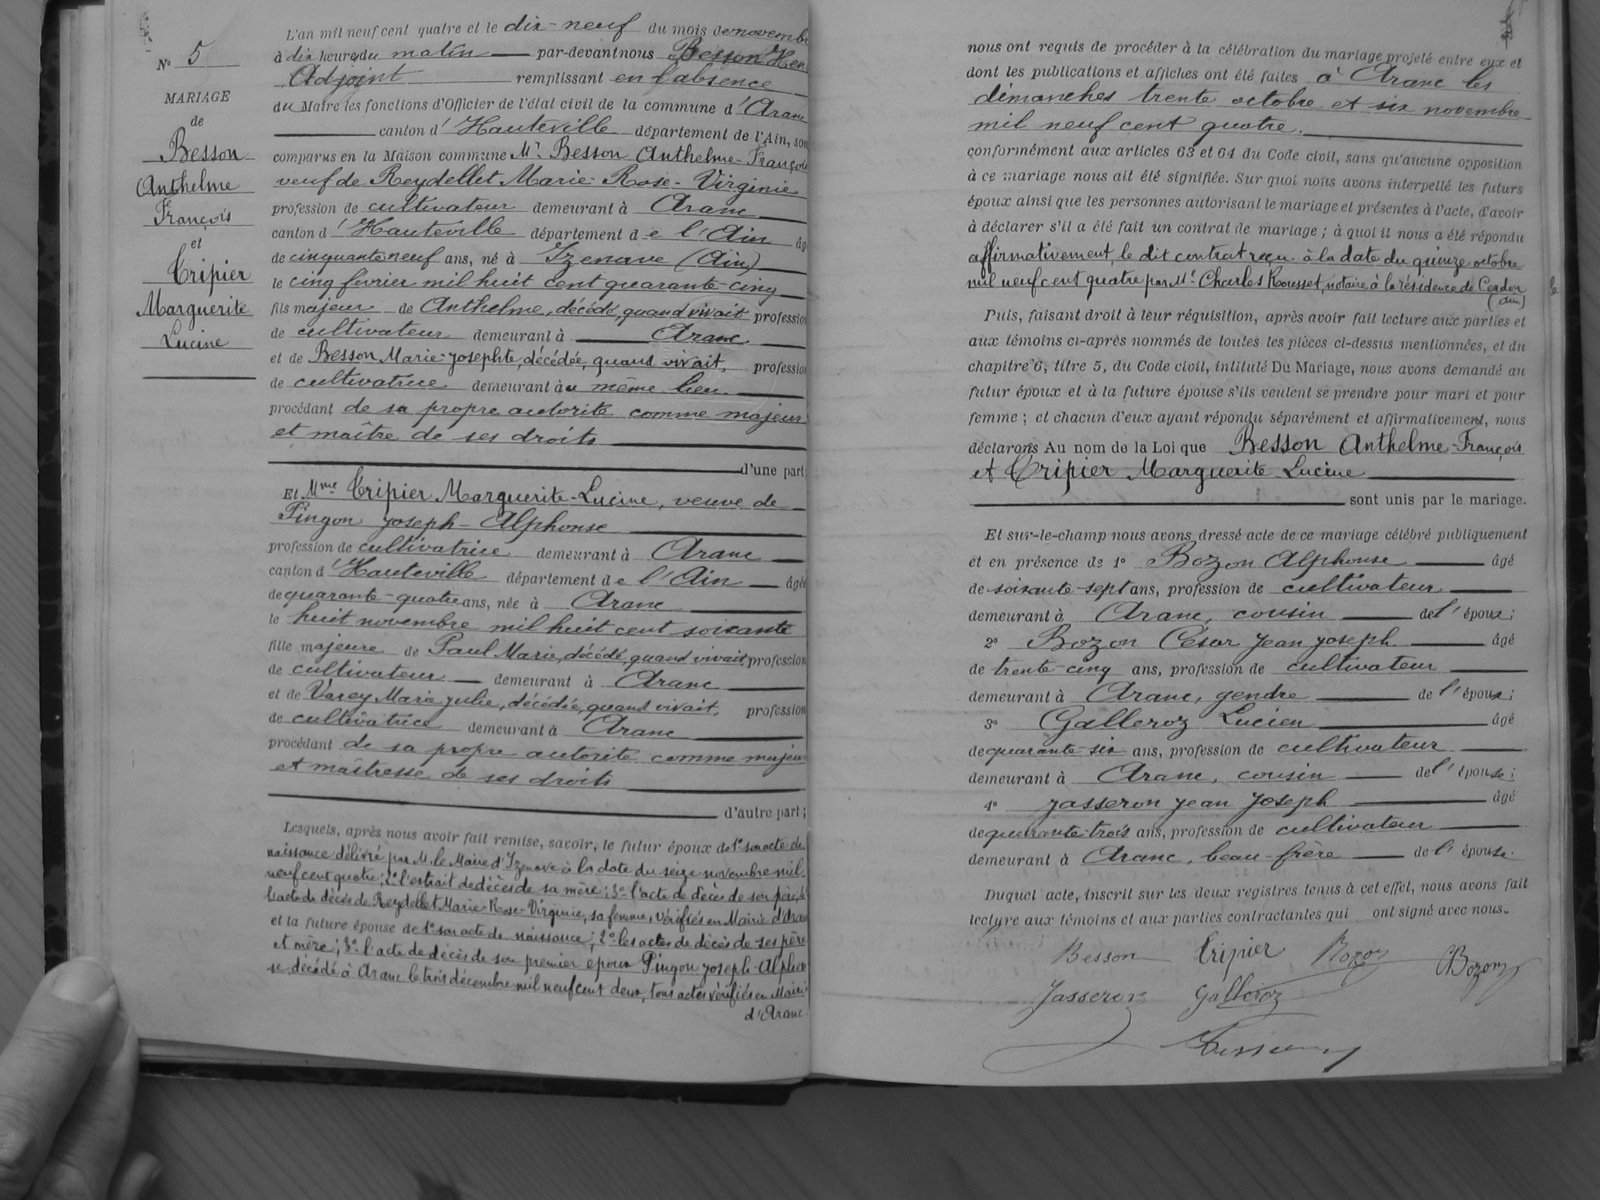 N° 5
MARIAGE
de
Besson
Anthelme
François
et
Tripier
Marguerite
Lucine
L'an mil neuf cent quatre et le dix-neuf du mois de novemb
à dix heures du matin par-devant nous Besson Hen
Adjoint remplissant en l'absence
du Maire les fonctions d'Officier de l'état civil de la commune d'Aranc
canton d'Hauteville département de l'Ain, son
comparus en la Maison commune Mr Besson Anthelme-François
veuf de Reydellet Marie-Rose-Virginie
profession de cultivateur demeurant à Aranc
canton d'Hauteville département de l'Ain âg
de cinquante neuf ans, né à Izenave (Ain)
le cinq février mil huit cent quarante-cinq
fils majeur de Anthelme, décédé, quand vivait profession
de cultivateur demeurant à Aranc
et de Besson Marie-Josephte, décédée, quand vivait, profession
de cultivatrice demeurant au même lieu
procédant de sa propre autorité comme majeur
et maître de ses droits
d'une part
Et Mme Tripier Marguerite-Lucine, veuve de
Pingon Joseph-Alphonse
profession de cultivatrice demeurant à Aranc
canton d'Hauteville département de l'Ain âgée
de quarante-quatre ans, née à Aranc
le huit novembre mil huit cent soixante
fille majeure de Paul Marie, décédé, quand vivait profession
de cultivateur demeurant à Aranc
et de Varey Marie Julie, décédée, quand vivait, profession
de cultivatrice demeurant à Aranc
procédant de sa propre autorité comme majeu
et maîtresse de ses droits
d'autre part;
Lesquels, après nous avoir fait remise, savoir, le futur époux de 1° son acte de
naissance délivré par M. le Maire d'Izenave à la date du seize novembre mil
neuf cent quatre; 2° l'extrait de décès de sa mère; 3° l'acte de décès de son père;
l'acte de décès de Reydellet Marie-Rose-Virginie, sa femme, vérifiés en Mairie d'Aran
et la future épouse de 1° son acte de naissance; 2° les actes de décès de ses père
et mère; 3° l'acte de décès de son premier époux Pingon Joseph-Alphon
se décédé à Aranc le trois décembre mil neuf cent deux, tous actes vérifiés en Mairie
d'Aranc
nous ont requis de procéder à la célébration du mariage projeté entre eux et
dont les publications et affiches ont été faites à Aranc les
dimanches trente octobre et six novembre
mil neuf cent quatre.
conformément aux articles 63 et 64 du Code civil, sans qu'aucune opposition
à ce mariage nous ait été signifiée. Sur quoi nous avons interpellé les futurs
époux ainsi que les personnes autorisant le mariage et présentes à l'acte, d'avoir
à déclarer s'il a été fait un contrat de mariage; à quoi il nous a été répondu
affirmativement, le dit contrat reçu à la date du quinze octobre
mil neuf cent quatre par Me Charles Rousset, notaire à la résidence de Cerdon
(Ain)
Puis, faisant droit à leur réquisition, après avoir fait lecture aux parties et
aux témoins ci-après nommés de toutes les pièces ci-dessus mentionnées, et du
chapitre 6, titre 5, du Code civil, intitulé Du Mariage, nous avons demandé au
futur époux et à la future épouse s'ils veulent se prendre pour mari et pour
femme; et chacun d'eux ayant répondu séparément et affirmativement, nous
déclarons Au nom de la Loi que Besson Anthelme-François
et Tripier Marguerite-Lucine
sont unis par le mariage.
Et sur-le-champ nous avons dressé acte de ce mariage célébré publiquement
et en présence de 1° Bozon Alphonse âgé
de soixante-sept ans, profession de cultivateur
demeurant à Aranc, cousin de l'époux;
2° Bozon César Jean Joseph âgé
de trente-cinq ans, profession de cultivateur
demeurant à Aranc, gendre de l'époux;
3° Galleroz Lucien âgé
de quarante-six ans, profession de cultivateur
demeurant à Aranc, cousin de l'épouse;
4° Jasseron Jean Joseph âgé
de quarante-trois ans, profession de cultivateur
demeurant à Aranc, beau-frère de l'épouse.
Duquel acte, inscrit sur les deux registres tenus à cet effet, nous avons fait
lecture aux témoins et aux parties contractantes qui ont signé avec nous.
Besson Tripier Bozon CBozon
Jasseron Galleroz
HBesson